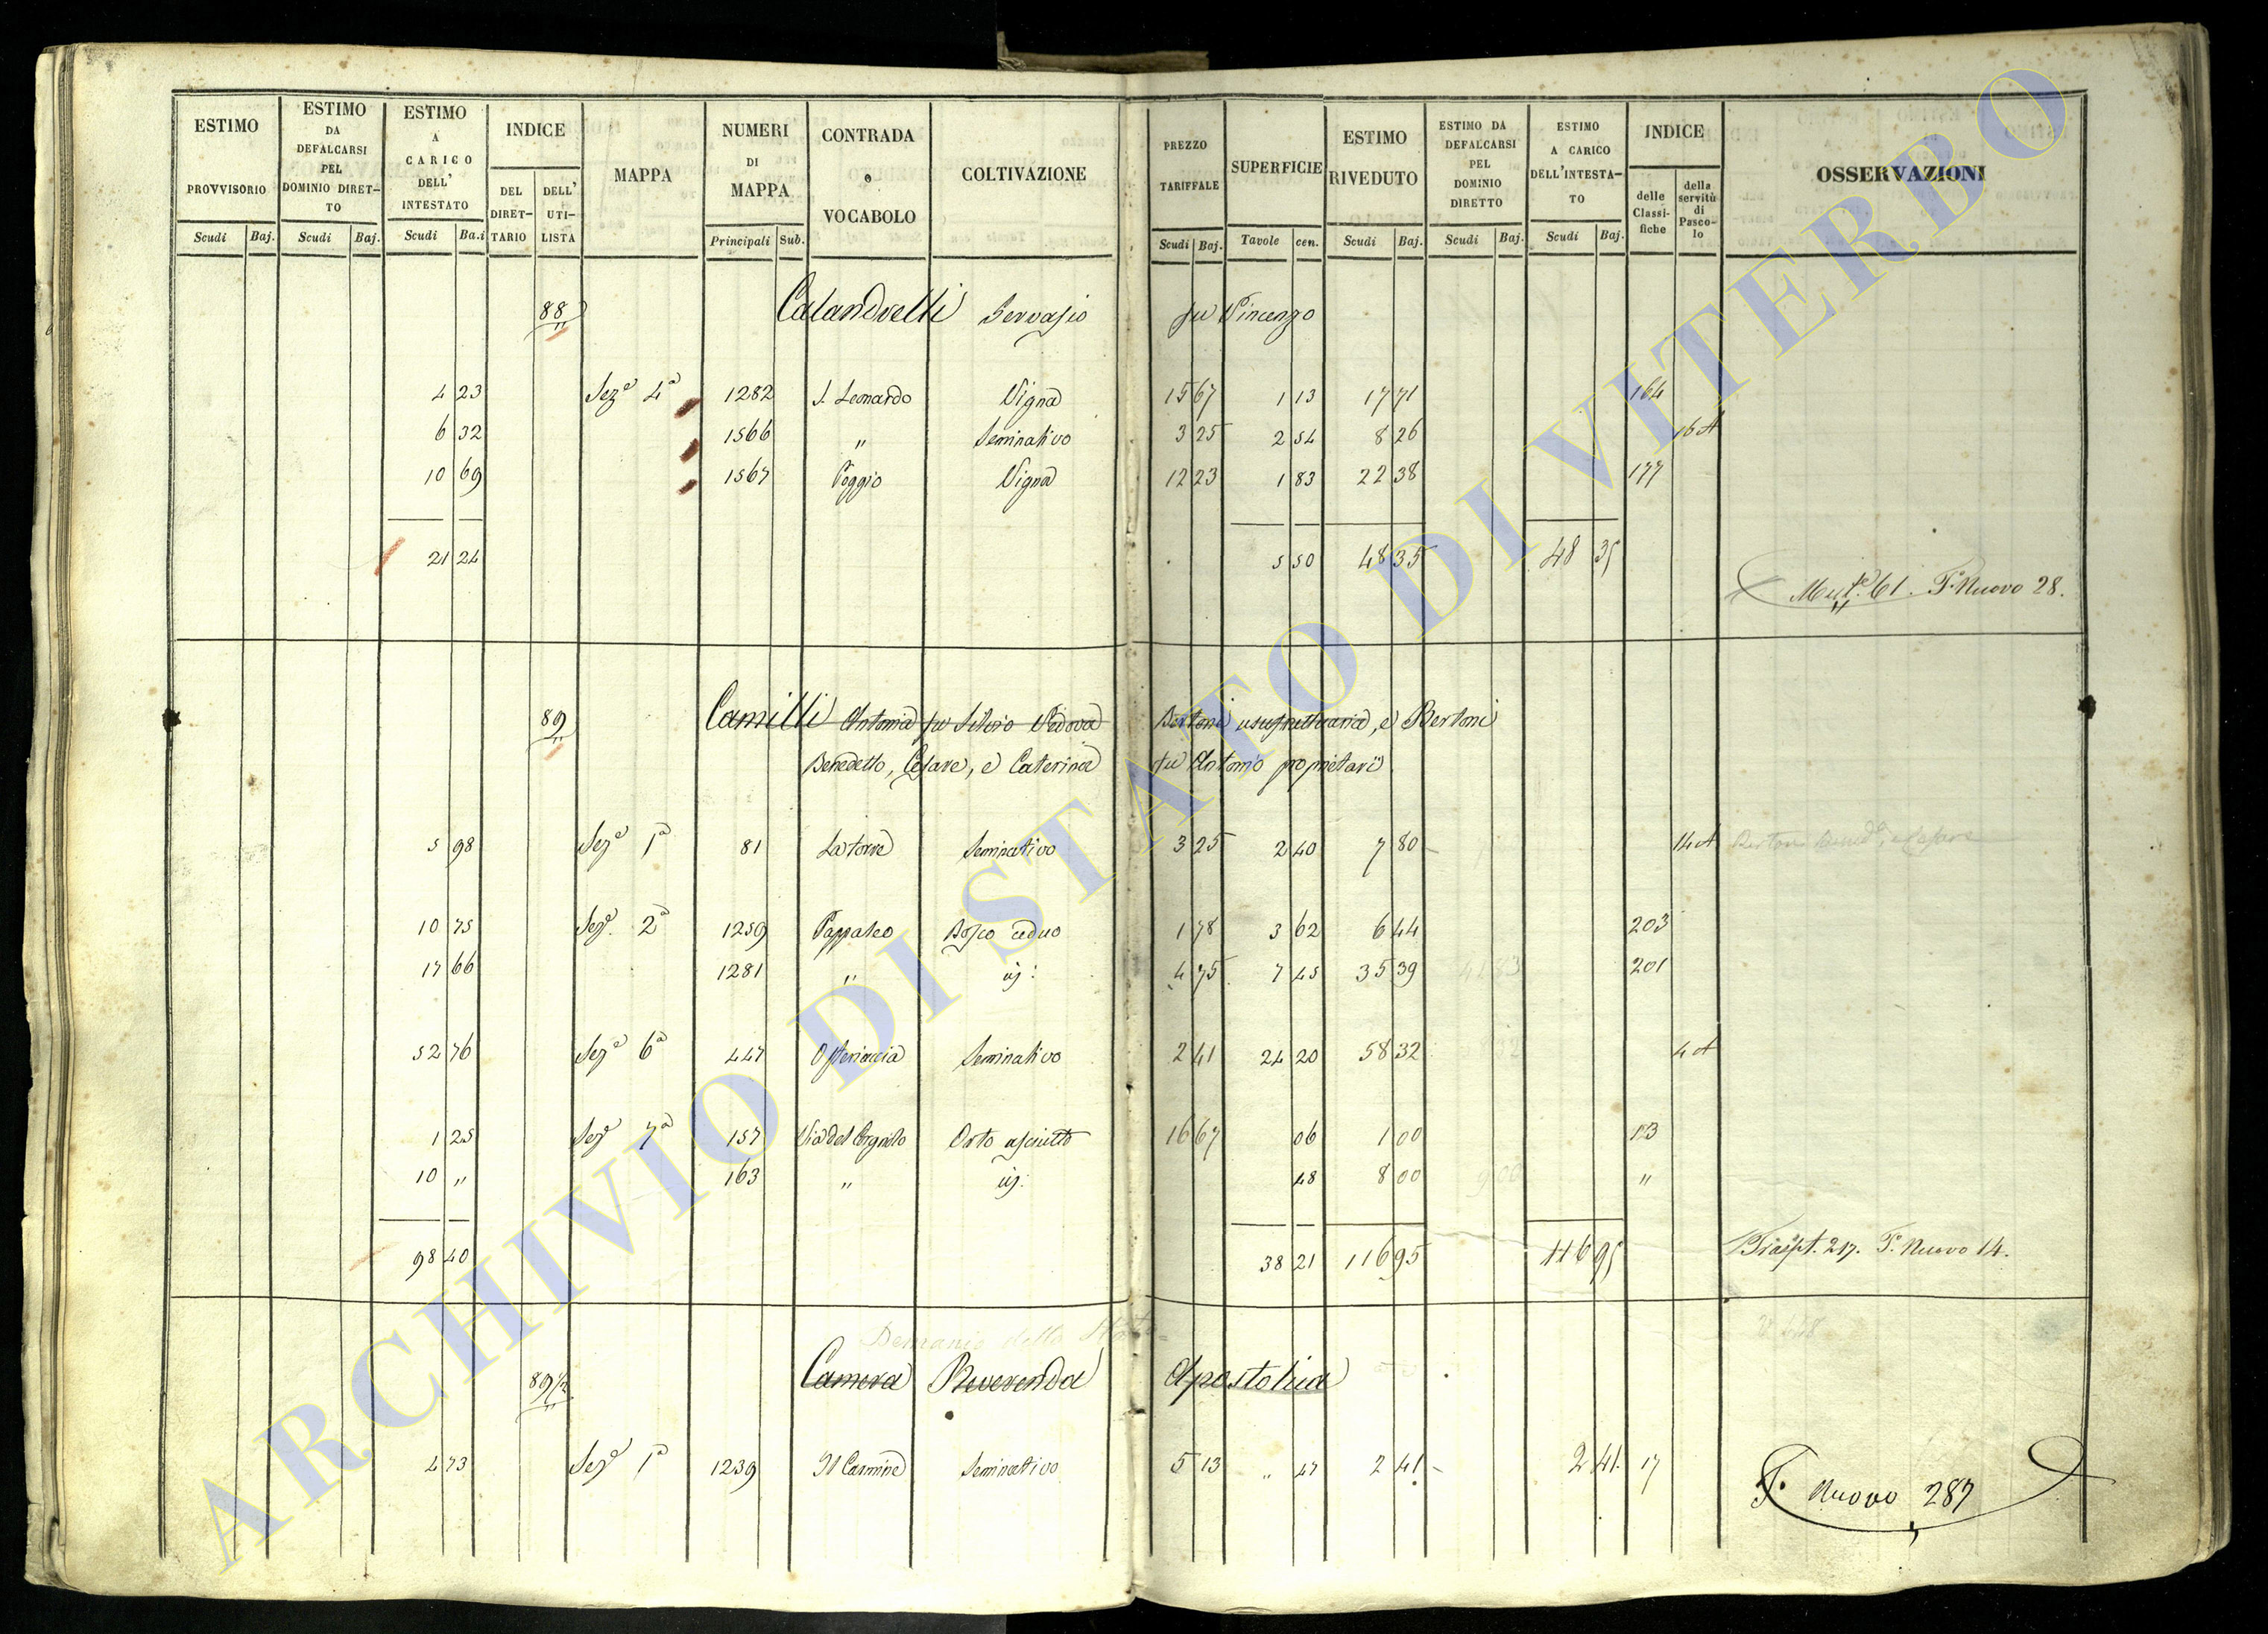 ESTIMO PROVVISORIO
ESTIMO DA DEFALCARSI PEL DOMINIO DIRET-TO
ESTIMO A CARICO DELL' INTESTATO
INDICE
DEL DIRET-TARIO
DELL' UTI-LISTA
MAPPA
NUMERI DI MAPPA
CONTRADA o VOCABOLO
COLTIVAZIONE
PREZZO TARIFFALE
SUPERFICIE
ESTIMO RIVEDUTO
ESTIMO DA DEFALCARSI PEL DOMINIO DIRETTO
ESTIMO A CARICO DELL'INTESTA-TO
INDICE
delle Classi-fiche
della servitù di Pasco-lo
OSSERVAZIONI
Scudi Baj. Scudi Baj. Scudi Ba.i Principali Sub. Scudi Baj. Tavole cen. Scudi Baj. Scudi Baj. Scudi Baj.
88 Calandrelli Servasio fu Vincenzo
4 23 Seze 4a 1282 S. Leonardo Vigna 15 67 1 13 17 71 164
6 32 1566 " Seminativo 3 25 2 54 8 26 16 A
10 69 1567 Poggio Vigna 12 23 1 83 22 38 177
21 24 5 50 48 35 48 35
Mut.e 61. P. Nuovo 28.
89 Camilli Antonia fu Silvio Vedova Bertoni usufruttuaria, e Bertoni
Benedetto, Cesare, e Caterina fu Antonio proprietari
5 98 Seze 1a 81 La torre Seminativo 3 25 2 40 7 80 14 A
10 75 Seze 2a 1259 Pappaleo Bosco ceduo 1 78 3 62 6 44 203
17 66 1281 " id: 4 75 7 45 35 39 201
52 76 Seze 6a 447 Osteriaccia Seminativo 2 41 24 20 58 32 4 A
1 25 Seze 7a 157 Via del Orgnito Orto asciutto 16 67 06 1 00 13
10 " 163 " id: 48 8 00 "
98 40 38 21 116 95 116 95
Traspt. 217. P. Nuovo 14.
Demanio dello Stato
89 1/2 Camera Reverenda Apostolica
4 73 Seze 1a 1239 Il Carmine Seminativo 5 13 " 47 2 41 2 41 17
P. Nuovo 287
ARCHIVIO DI STATO DI VITERBO